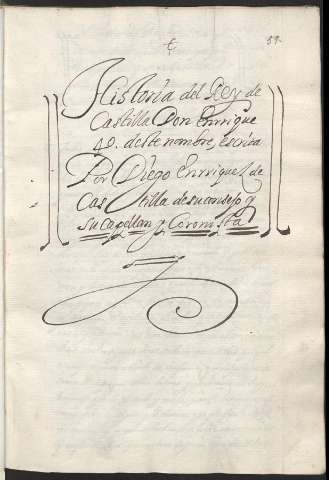 59.
Historia del Rey de
Castilla Don Enrrique
4o. deste nombre, escrita
Por Diego Enrriquez de
Castilla de su consejo y
su Capellan y Coronista